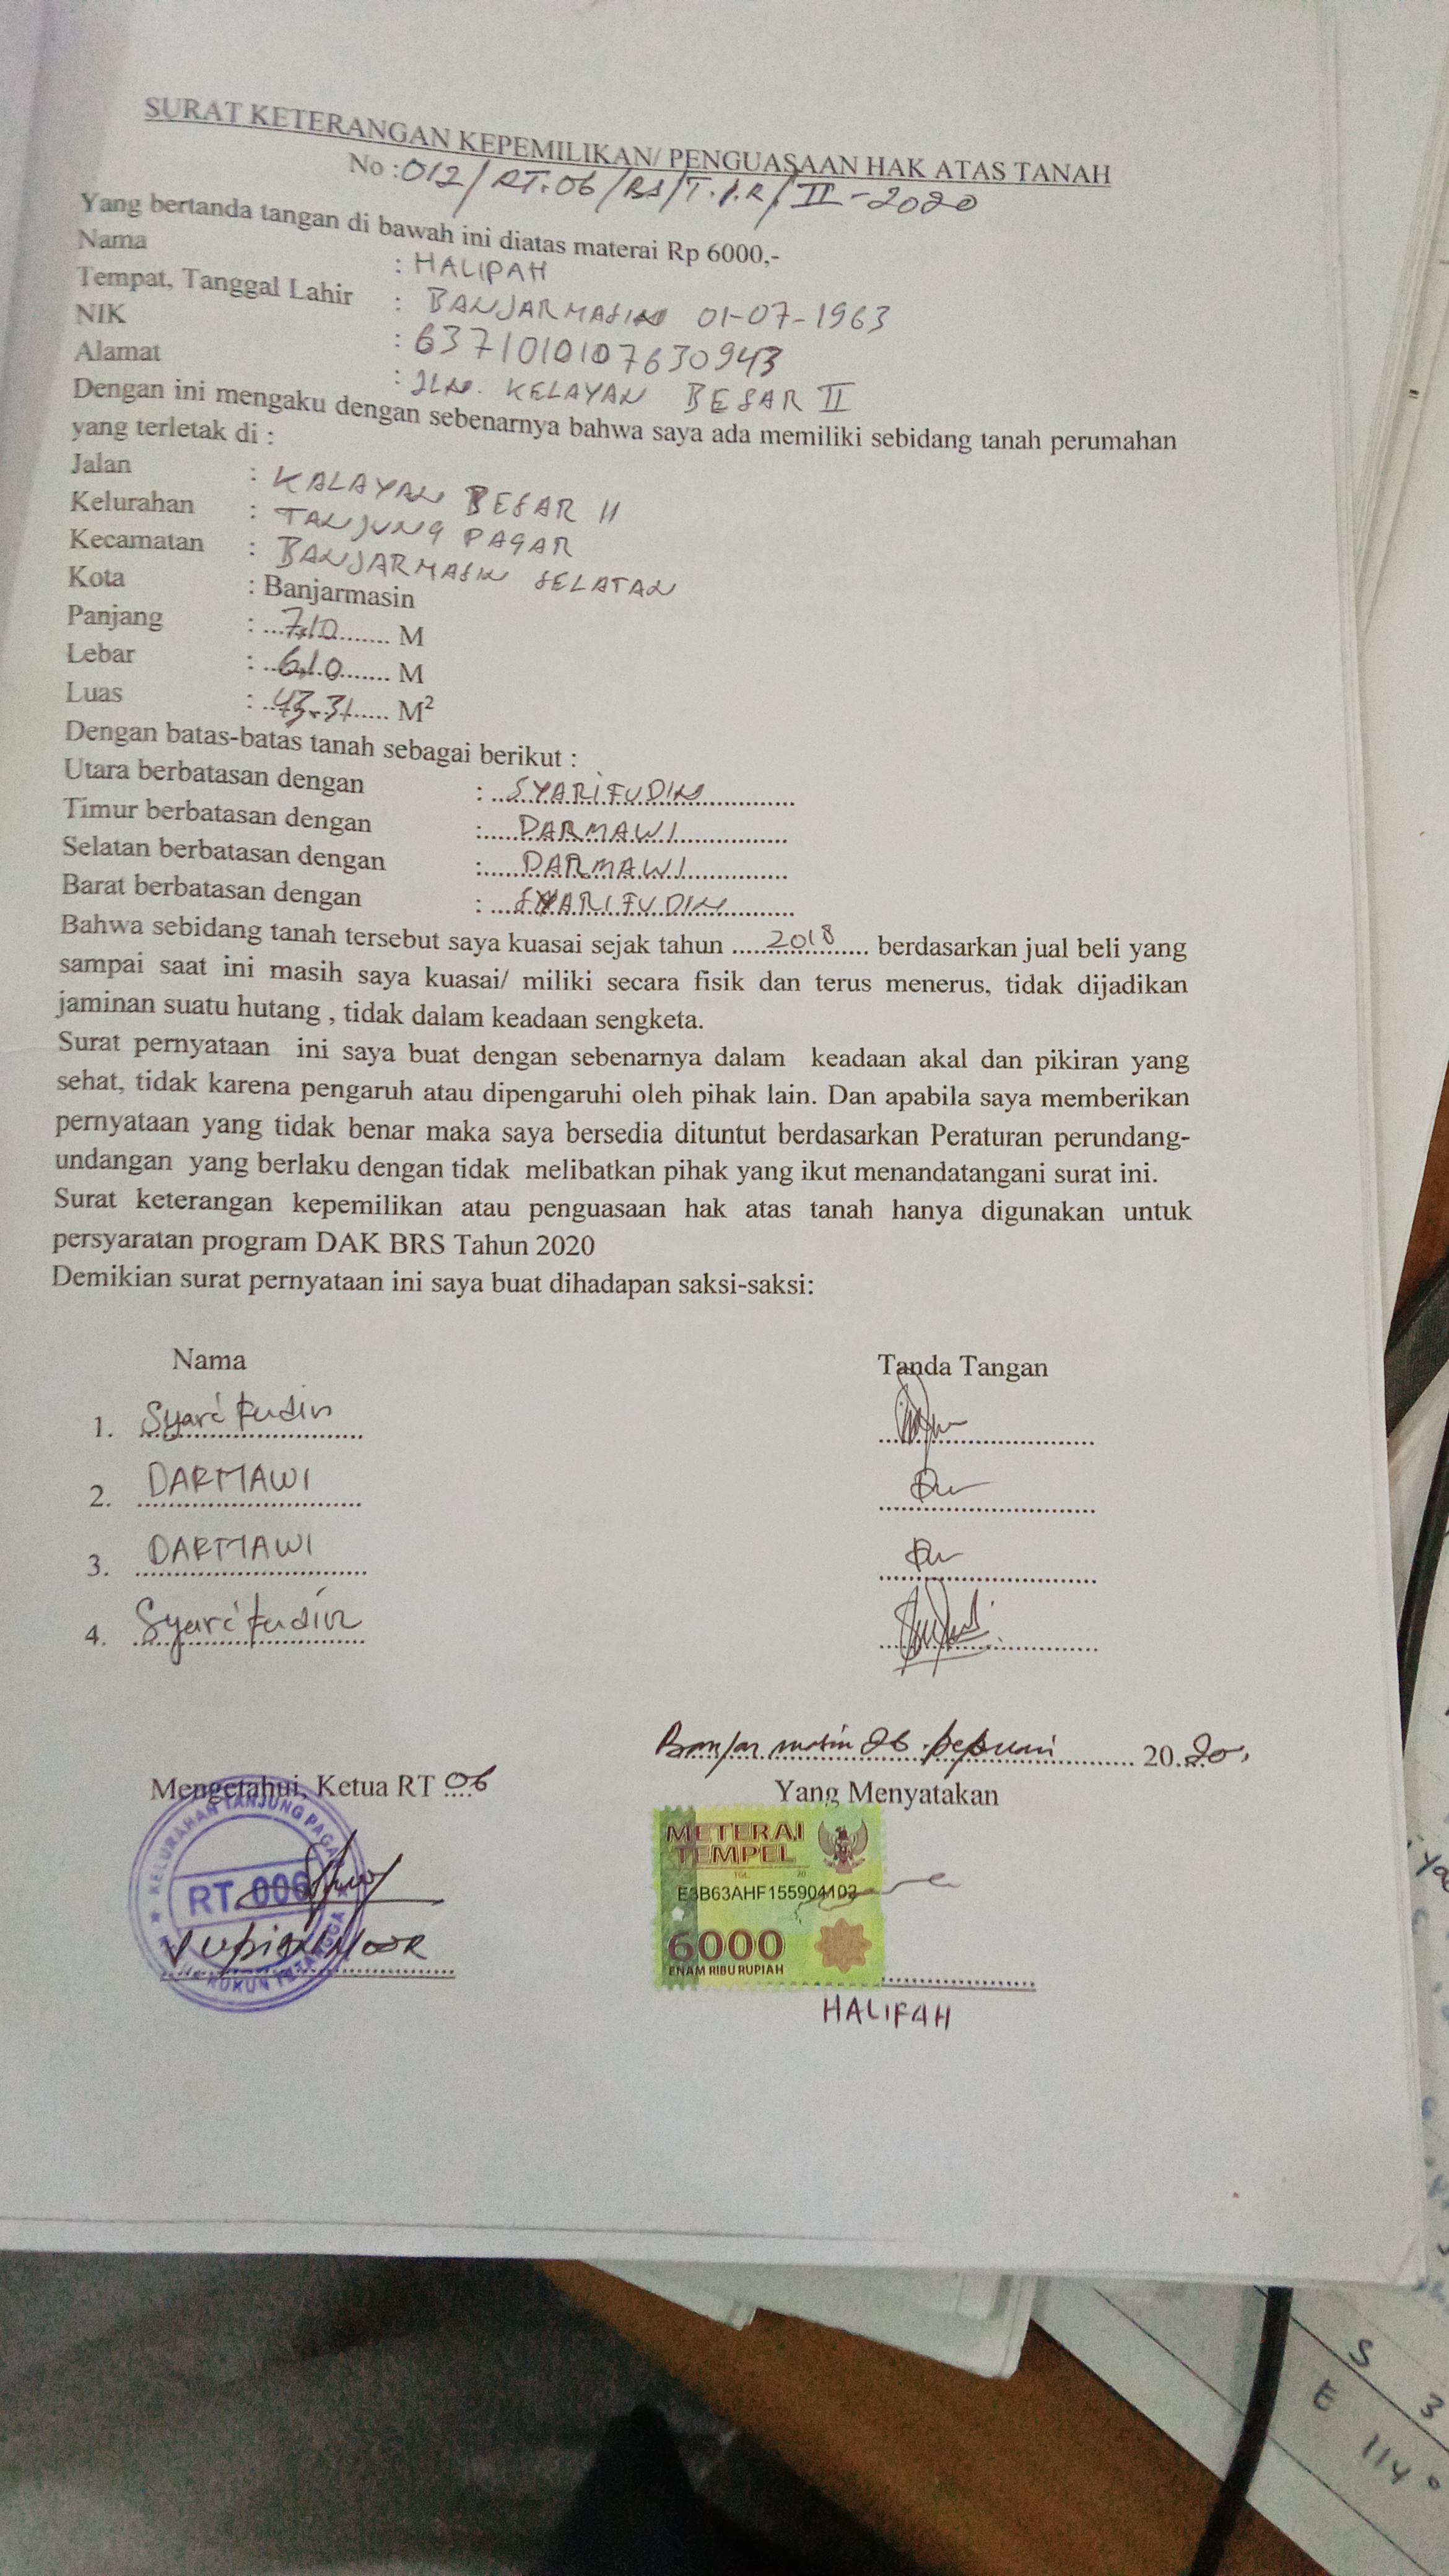 SURAT KETERANGAN KEPEMILIKAN/ PENGUASAAN HAK ATAS TANAH
No : 012/RT.06/BS/T.P.R/II-2020
Yang bertanda tangan di bawah ini diatas materai Rp 6000,-
Nama : HALIPAH
Tempat, Tanggal Lahir : BANJARMASIN 01-07-1963
NIK : 6371010107630943
Alamat : JLN. KELAYAN BESAR II
Dengan ini mengaku dengan sebenarnya bahwa saya ada memiliki sebidang tanah perumahan
yang terletak di :
Jalan : KALAYAN BESAR II
Kelurahan : TANJUNG PAGAR
Kecamatan : BANJARMASIN SELATAN
Kota : Banjarmasin
Panjang : 7,10 M
Lebar : 6,10 M
Luas : 43.31 M²
Dengan batas-batas tanah sebagai berikut :
Utara berbatasan dengan : SYARIFUDIN
Timur berbatasan dengan : DARMAWI
Selatan berbatasan dengan : DARMAWI
Barat berbatasan dengan : SYARIFUDIN
Bahwa sebidang tanah tersebut saya kuasai sejak tahun 2018 berdasarkan jual beli yang
sampai saat ini masih saya kuasai/ miliki secara fisik dan terus menerus, tidak dijadikan
jaminan suatu hutang , tidak dalam keadaan sengketa.
Surat pernyataan ini saya buat dengan sebenarnya dalam keadaan akal dan pikiran yang
sehat, tidak karena pengaruh atau dipengaruhi oleh pihak lain. Dan apabila saya memberikan
pernyataan yang tidak benar maka saya bersedia dituntut berdasarkan Peraturan perundang-
undangan yang berlaku dengan tidak melibatkan pihak yang ikut menandatangani surat ini.
Surat keterangan kepemilikan atau penguasaan hak atas tanah hanya digunakan untuk
persyaratan program DAK BRS Tahun 2020
Demikian surat pernyataan ini saya buat dihadapan saksi-saksi:
Nama Tanda Tangan
1. Syarifudin
2. DARMAWI
3. DARMAWI
4. Syarifudin
Banjarmasin 26 Februari 2020.
Mengetahui, Ketua RT 06 Yang Menyatakan
KELURAHAN TANJUNG PAGAR
RT.006
RUKUN TETANGGA
METERAI
TEMPEL
TGL. 20
E3B63AHF155904102
6000
ENAM RIBU RUPIAH
HALIFAH
S 3
E 114°